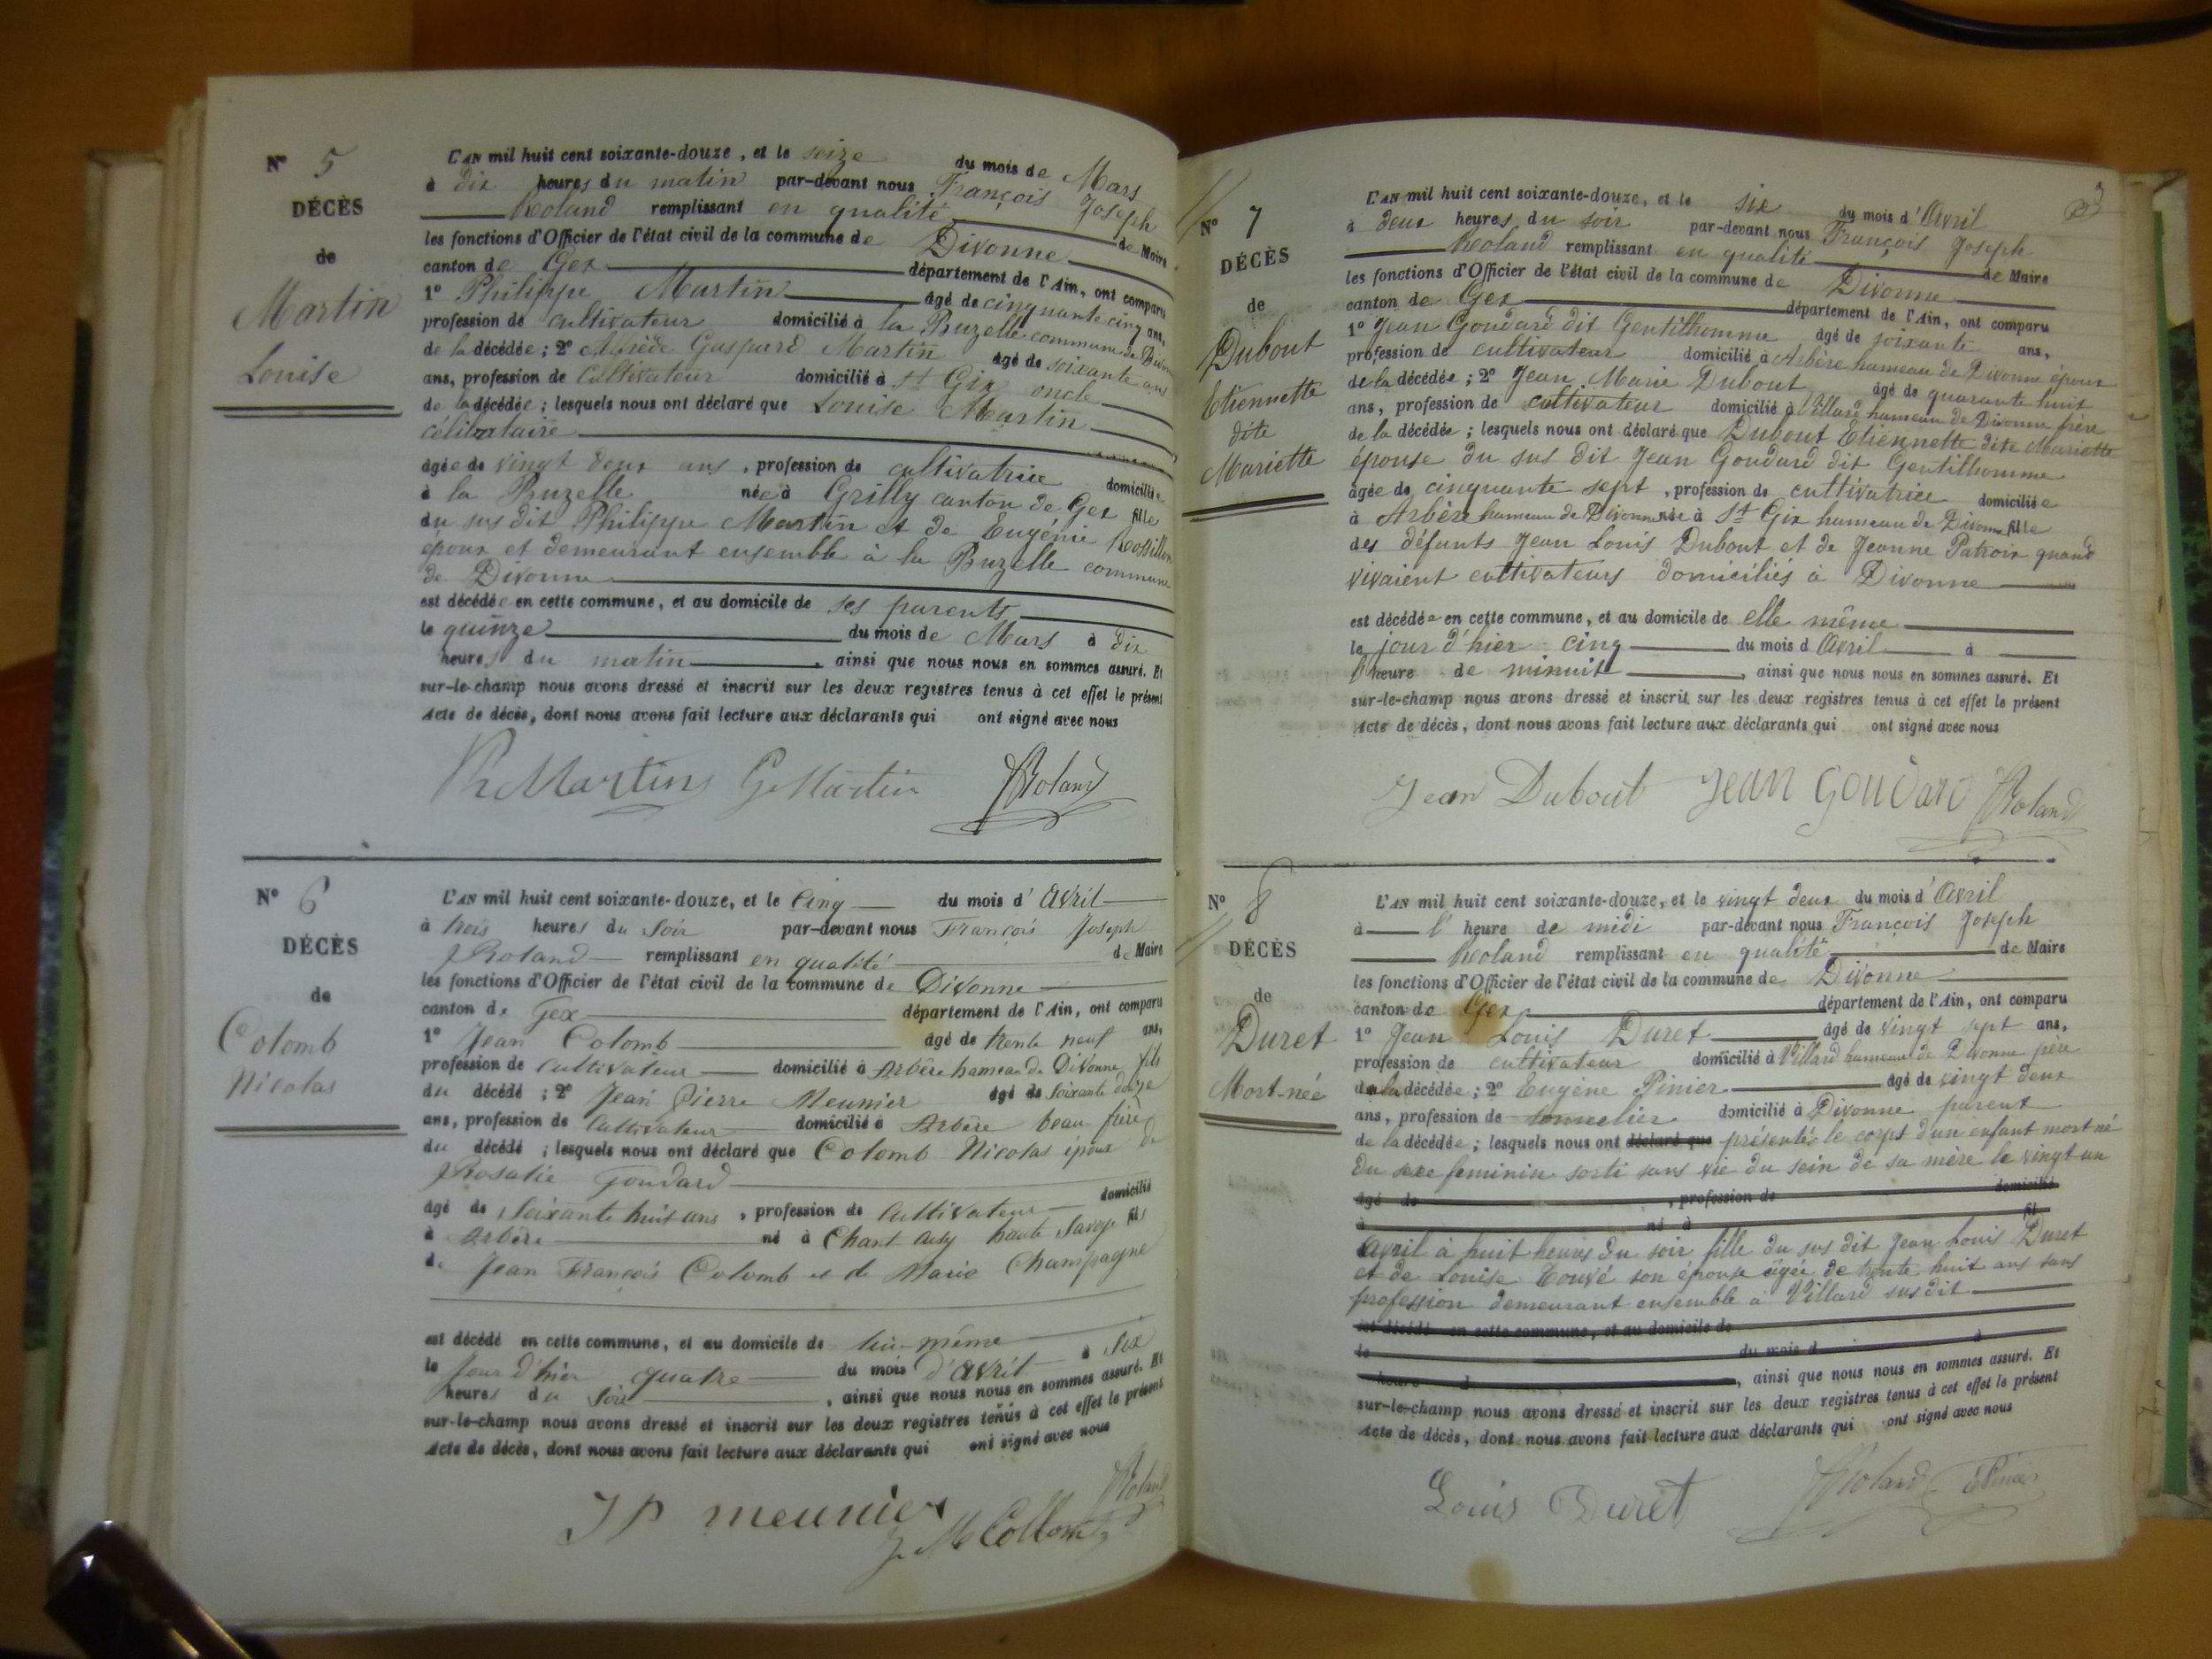 N° 5
DÉCÈS
de
Martin
Louise
L'AN mil huit cent soixante-douze, et le seize du mois de Mars
à dix heures du matin par-devant nous François Joseph
Roland remplissant en qualité de Maire
les fonctions d'Officier de l'état civil de la commune de Divonne
canton de Gex département de l'Ain, ont comparu
1° Philippe Martin âgé de cinquante cinq ans,
profession de cultivateur domicilié à la Buzelle commune de Divonne
de la décédée ; 2° Gaspard Martin âgé de soixante ans
ans, profession de cultivateur domicilié à St Gix oncle
de la décédée ; lesquels nous ont déclaré que Louise Martin
célibataire
âgée de vingt deux ans, profession de cultivatrice domiciliée
à la Buzelle née à Grilly canton de Gex fille
du sus dit Philippe Martin et de Eugénie Rossillon
époux et demeurant ensemble à la Buzelle commune
de Divonne
est décédée en cette commune, et au domicile de ses parents
le quinze du mois de Mars à dix
heures du matin, ainsi que nous nous en sommes assuré. Et
sur-le-champ nous avons dressé et inscrit sur les deux registres tenus à cet effet le présent
Acte de décès, dont nous avons fait lecture aux déclarants qui ont signé avec nous
Ph Martin G Martin Roland
N° 6
DÉCÈS
de
Colomb
Nicolas
L'AN mil huit cent soixante-douze, et le cinq du mois d'Avril
à trois heures du soir par-devant nous François Joseph
Roland remplissant en qualité de Maire
les fonctions d'Officier de l'état civil de la commune de Divonne
canton de Gex département de l'Ain, ont comparu
1° Jean Colomb âgé de trente neuf ans,
profession de cultivateur domicilié à Arbère hameau de Divonne fils
du décédé ; 2° Jean Pierre Meunier âgé de soixante douze
ans, profession de cultivateur domicilié à Arbère beau frère
du décédé ; lesquels nous ont déclaré que Colomb Nicolas époux de
Rosalie Goudard
âgé de soixante huit ans, profession de cultivateur domicilié
à Arbère né à haute Savoye fils
de Jean François Colomb et de Marie Champagne
est décédé en cette commune, et au domicile de lui-même
le jour d'hier quatre du mois d'avril à six
heures du soir, ainsi que nous nous en sommes assuré. Et
sur-le-champ nous avons dressé et inscrit sur les deux registres tenus à cet effet le présent
Acte de décès, dont nous avons fait lecture aux déclarants qui ont signé avec nous
J P meunier J M Collomb Roland
3
N° 7
DÉCÈS
de
Dubout
Etiennette
dite
Mariette
L'AN mil huit cent soixante-douze, et le six du mois d'Avril
à deux heures du soir par-devant nous François Joseph
Roland remplissant en qualité de Maire
les fonctions d'Officier de l'état civil de la commune de Divonne
canton de Gex département de l'Ain, ont comparu
1° Jean Goudard dit Gentilhomme âgé de soixante ans,
profession de cultivateur domicilié à Arbère hameau de Divonne époux
de la décédée ; 2° Jean Marie Dubout âgé de quarante huit
ans, profession de cultivateur domicilié à Villard hameau de Divonne frère
de la décédée ; lesquels nous ont déclaré que Dubout Etiennette dite Mariette
épouse du sus dit Jean Goudard dit Gentilhomme
âgée de cinquante sept, profession de cultivatrice domiciliée
à Arbère hameau de Divonne née à St Gix hameau de Divonne fille
des défunts Jean Louis Dubout et de Jeanne Patroix quand
vivaient cultivateurs domiciliés à Divonne
est décédée en cette commune, et au domicile de elle même
le jour d'hier cinq du mois d Avril à
l'heure de minuit, ainsi que nous nous en sommes assuré. Et
sur-le-champ nous avons dressé et inscrit sur les deux registres tenus à cet effet le présent
Acte de décès, dont nous avons fait lecture aux déclarants qui ont signé avec nous
Jean Dubout Jean Goudard Roland
N° 8
DÉCÈS
de
Duret
Mort-née
L'AN mil huit cent soixante-douze, et le vingt deux du mois d'Avril
à l'heure de midi par-devant nous François Joseph
Roland remplissant en qualité de Maire
les fonctions d'Officier de l'état civil de la commune de Divonne
canton de Gex département de l'Ain, ont comparu
1° Jean Louis Duret âgé de vingt sept ans,
profession de cultivateur domicilié à Villard hameau de Divonne père
de la décédée ; 2° Eugène Pinier âgé de vingt deux
ans, profession de tonnelier domicilié à Divonne parent
de la décédée ; lesquels nous ont déclaré que présentés le corps d'un enfant mort né
du sexe feminin sorti sans vie du sein de sa mère le vingt un
âgé de , profession de domicilié
à né à fil
Avril à huit heures du soir fille du sus dit Jean Louis Duret
et de Louise son épouse âgée de trente huit ans sans
profession demeurant ensemble à Villard susdit
est décédé en cette commune, et au domicile de
le du mois d à
heure d , ainsi que nous nous en sommes assuré. Et
sur-le-champ nous avons dressé et inscrit sur les deux registres tenus à cet effet le présent
Acte de décès, dont nous avons fait lecture aux déclarants qui ont signé avec nous
Louis Duret Roland E Pinier